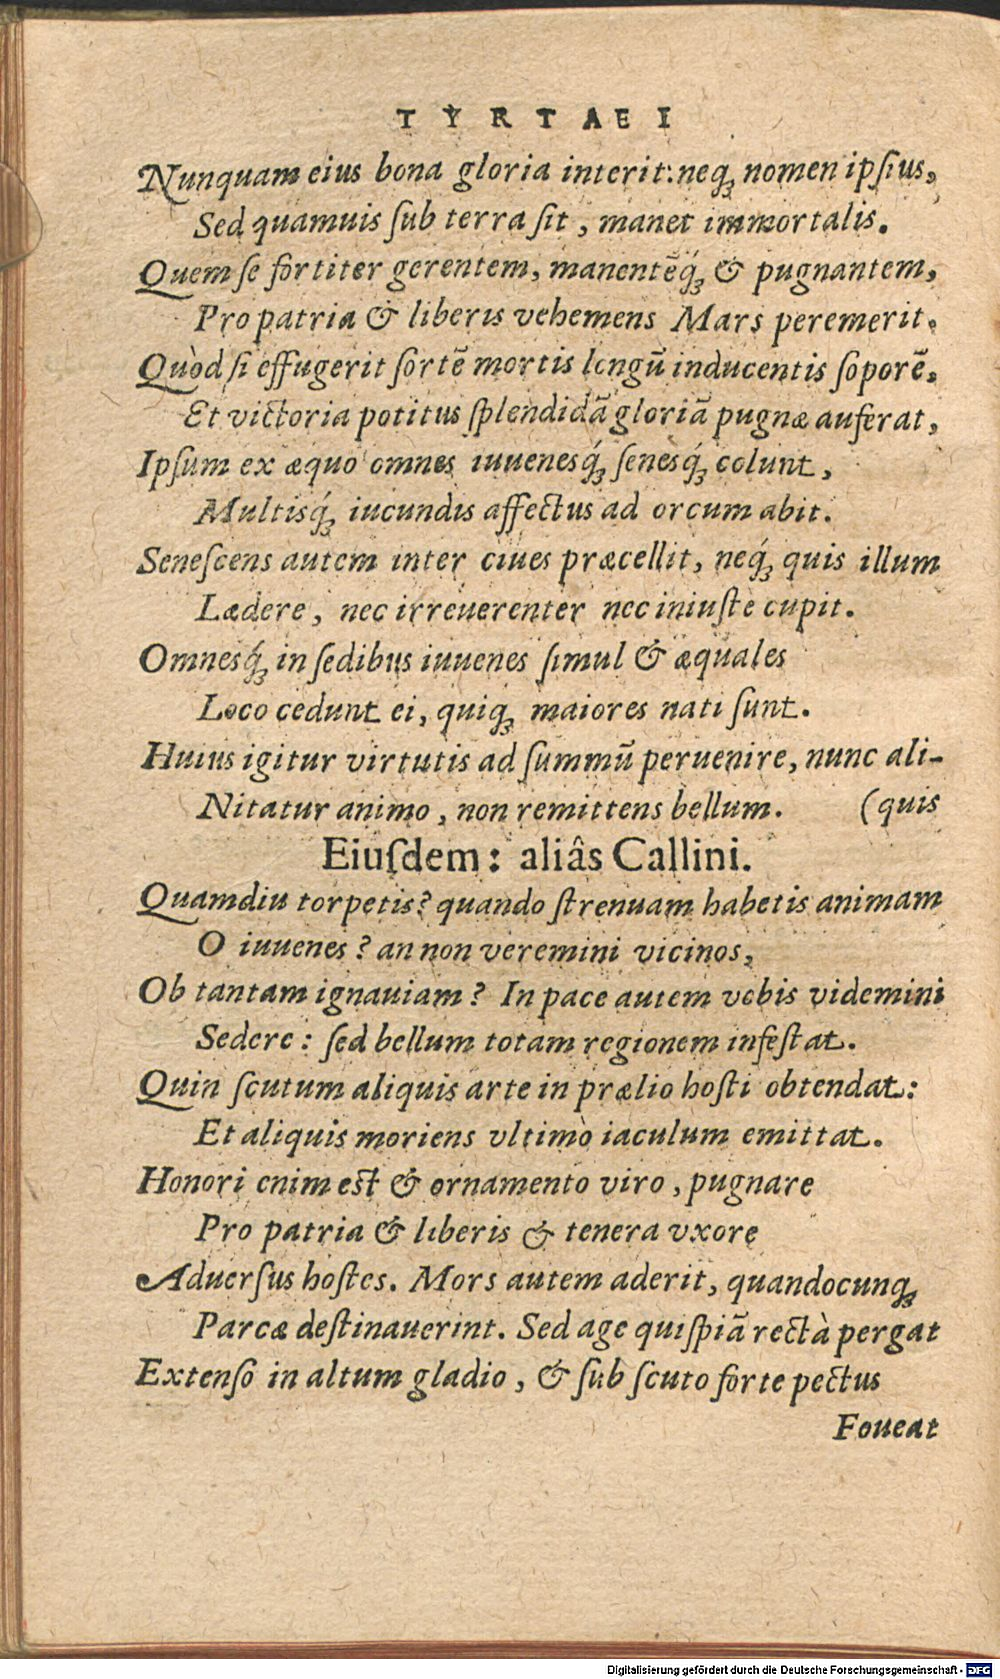 TYRTAEI
Nunquam eius bona gloria interit: neqꝫ nomen ipſius,
Sed quamuis ſub terra ſit, manet immortalis.
Quem ſe fortiter gerentem, manentẽq́ꝫ & pugnantem,
Pro patria & liberis vehemens Mars peremerit.
Quòd ſi effugerit ſortẽ mortis longũ inducentis ſoporẽ,
Et victoria potitus ſplendidã gloriã pugnæ auferat,
Ipſum ex æquo omnes iuuenesq́ꝫ ſenesq́ꝫ colunt,
Multisq́ꝫ iucundis affectus ad orcum abit.
Seneſcens autem inter ciues præcellit, neq́ꝫ quis illum
Lædere, nec irreuerenter nec iniuſte cupit.
Omnesq́ꝫ in ſedibus iuuenes ſimul & æquales
Loco cedunt ei, quiqꝫ maiores nati ſunt.
Huius igitur virtutis ad ſummũ peruenire, nunc ali-
Nitatur animo, non remittens bellum. (quis
Eiuſdem: aliâs Callini.
Quamdiu torpetis? quando ſtrenuam habetis animam
O iuuenes? an non veremini vicinos,
Ob tantam ignauiam? In pace autem vobis videmini
Sedere: ſed bellum totam regionem infeſtat.
Quin ſcutum aliquis arte in prælio hoſti obtendat:
Et aliquis moriens vltimò iaculum emittat.
Honori enim est & ornamento viro, pugnare
Pro patria & liberis & tenera vxore
Aduerſus hoſtes. Mors autem aderit, quandocunqꝫ
Parcæ deſtinauerint. Sed age quiſpiã rectà pergat
Extenſo in altum gladio, & ſub ſcuto forte pectus
Foueat
Digitalisierung gefördert durch die Deutsche Forschungsgemeinschaft - DFG